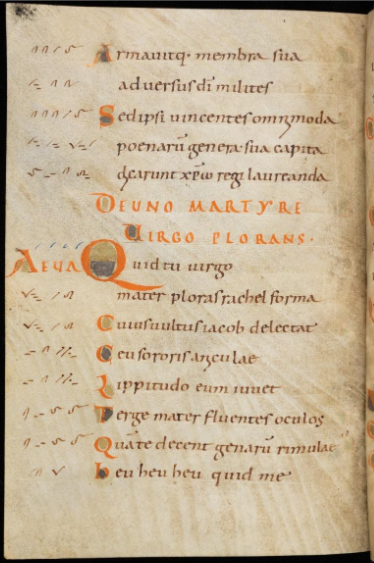 Armavitq· membra sua
adversus dı̄ milites
Sed ipsi vincentes omnimoda
poenarū genera· sua capita
dicarunt xp̄o regi laureanda
DE UNO MARTYRE
VIRGO PLORANS·
AEUA Quid tu virgo
mater ploras rachel forma
Cuius vultus iacob delectat
Ceu sororis aniculae
Lippitudo eum iuvet
Terge mater fluentes oculos
Quā te decent genarū rimulae
heu heu heu quid me